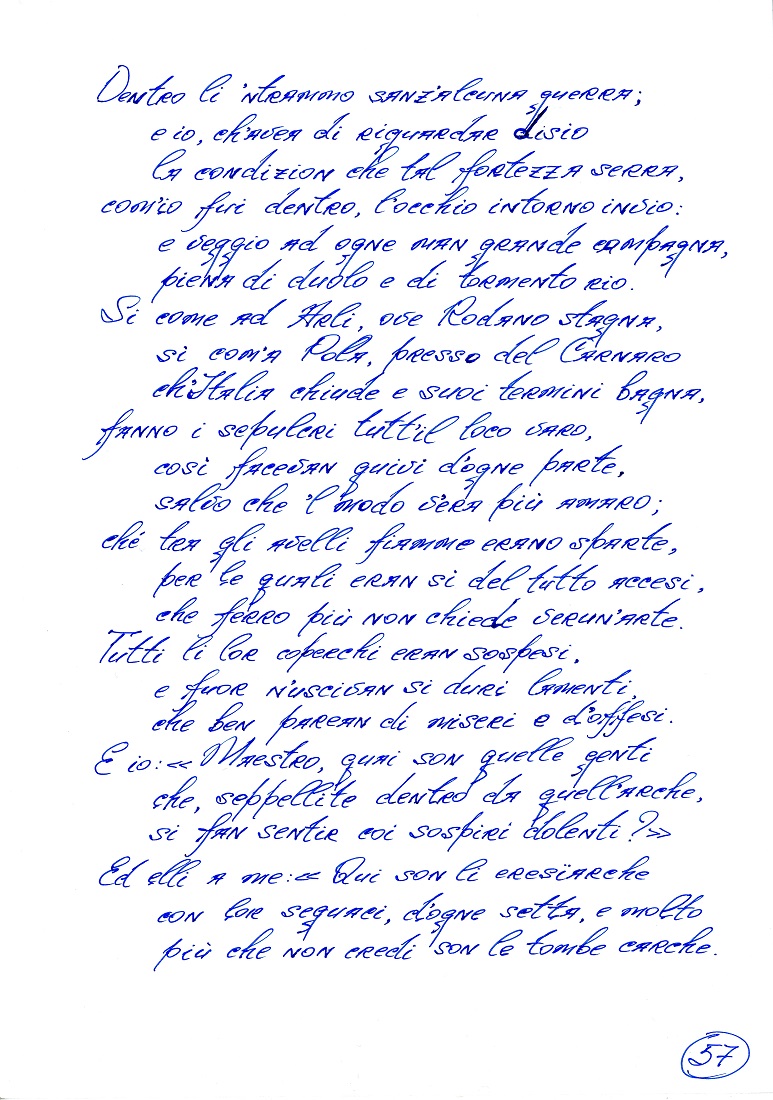 Dentro li 'ntrammo sanz'alcuna guerra;
e io, ch'avea di riguardar disio
la condizion che tal fortezza serra,
com'io fui dentro, l'occhio intorno invio:
e veggio ad ogne man grande campagna,
piena di duolo e di tormento rio.
Sì come ad Arli, ove Rodano stagna,
sì com'a Pola, presso del Carnaro
ch'Italia chiude e suoi termini bagna,
fanno i sepulcri tutt'il loco varo,
così facevan quivi d'ogne parte,
salvo che 'l modo v'era più amaro;
ché tra gli avelli fiamme erano sparte,
per le quali eran sì del tutto accesi,
che ferro più non chiede verun'arte.
Tutti li lor coperchi eran sospesi,
e fuor n'uscivan sì duri lamenti,
che ben parean di miseri e d'offesi.
E io: «Maestro, quai son quelle genti
che, seppellite dentro da quell'arche,
si fan sentir coi sospiri dolenti?»
Ed elli a me: «Qui son li eresïarche
con lor seguaci, d'ogne setta, e molto
più che non credi son le tombe carche.
57